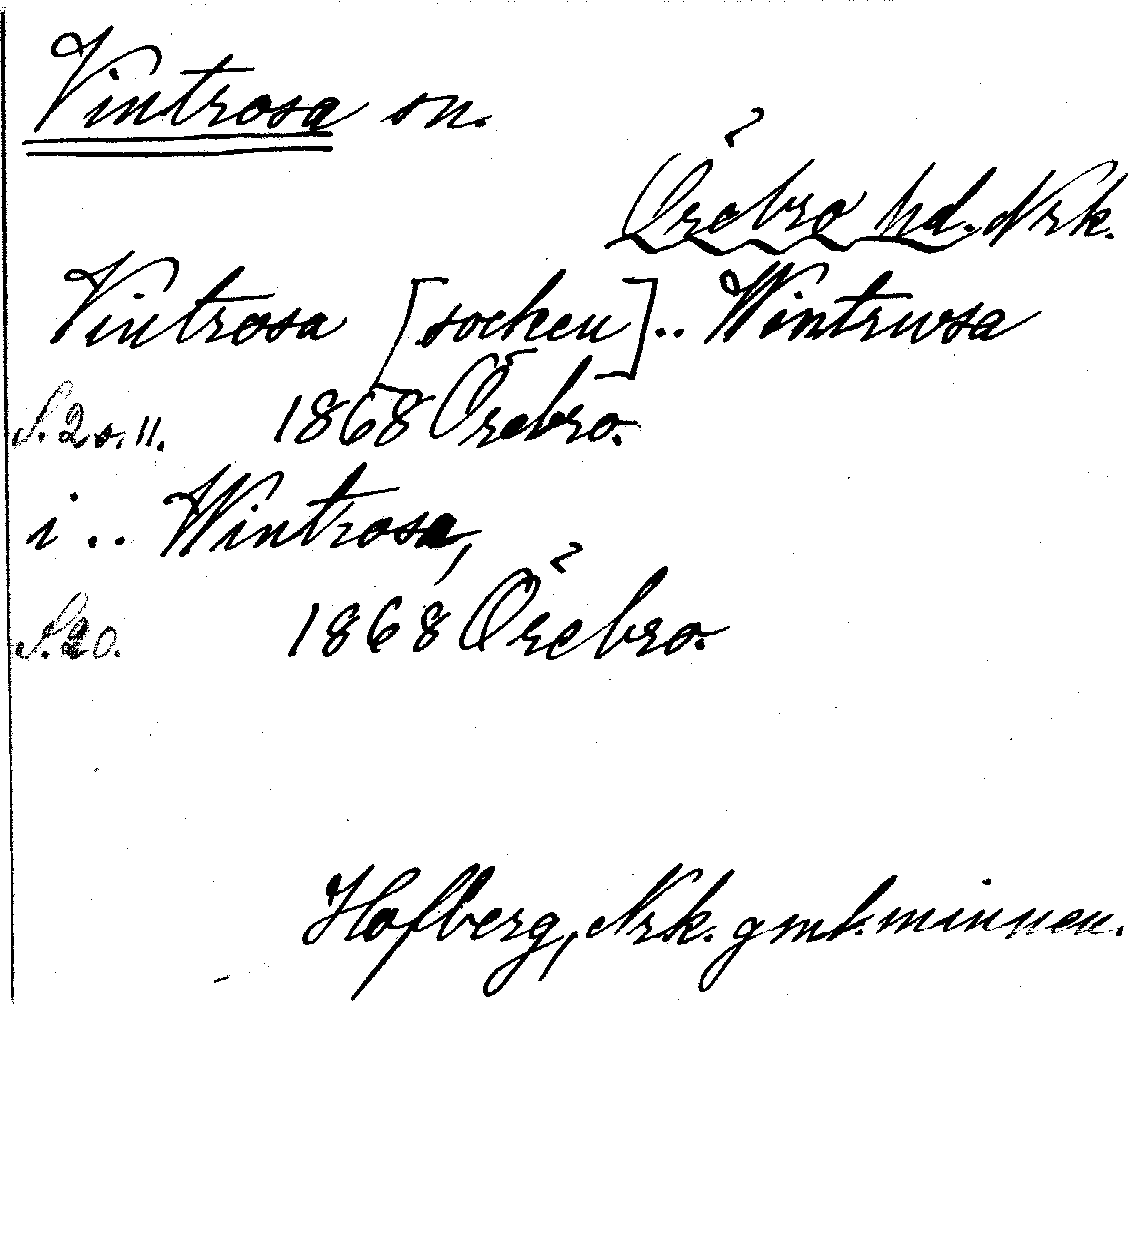 Vintrosa sn.
Örebro hd. Nrk.
Vintrosa [socken] .. Wintrusa
S. 2 o. 11. 1868 Örebro.
i .. Wintrosa,
S. 20. 1868 Örebro.
Hofberg, Nrk. gml. minnen.